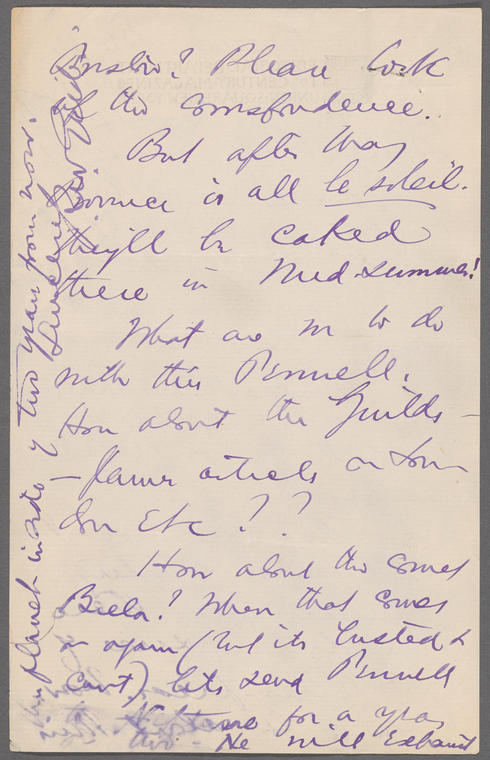 Please look
at the correspondence.
But after May
Provence is all le soleil.
they'll be caked
there in Mid-summer!
What are we to do
with this Pennell.
How about the Guilds —
— flower articles on
Etc ? ?
How about the comet
Biela? When that comes
again (but its busted &
can't) lets send Pennell
to Neptune for a year
two - He will Exhaust
planet inside of two years from now.